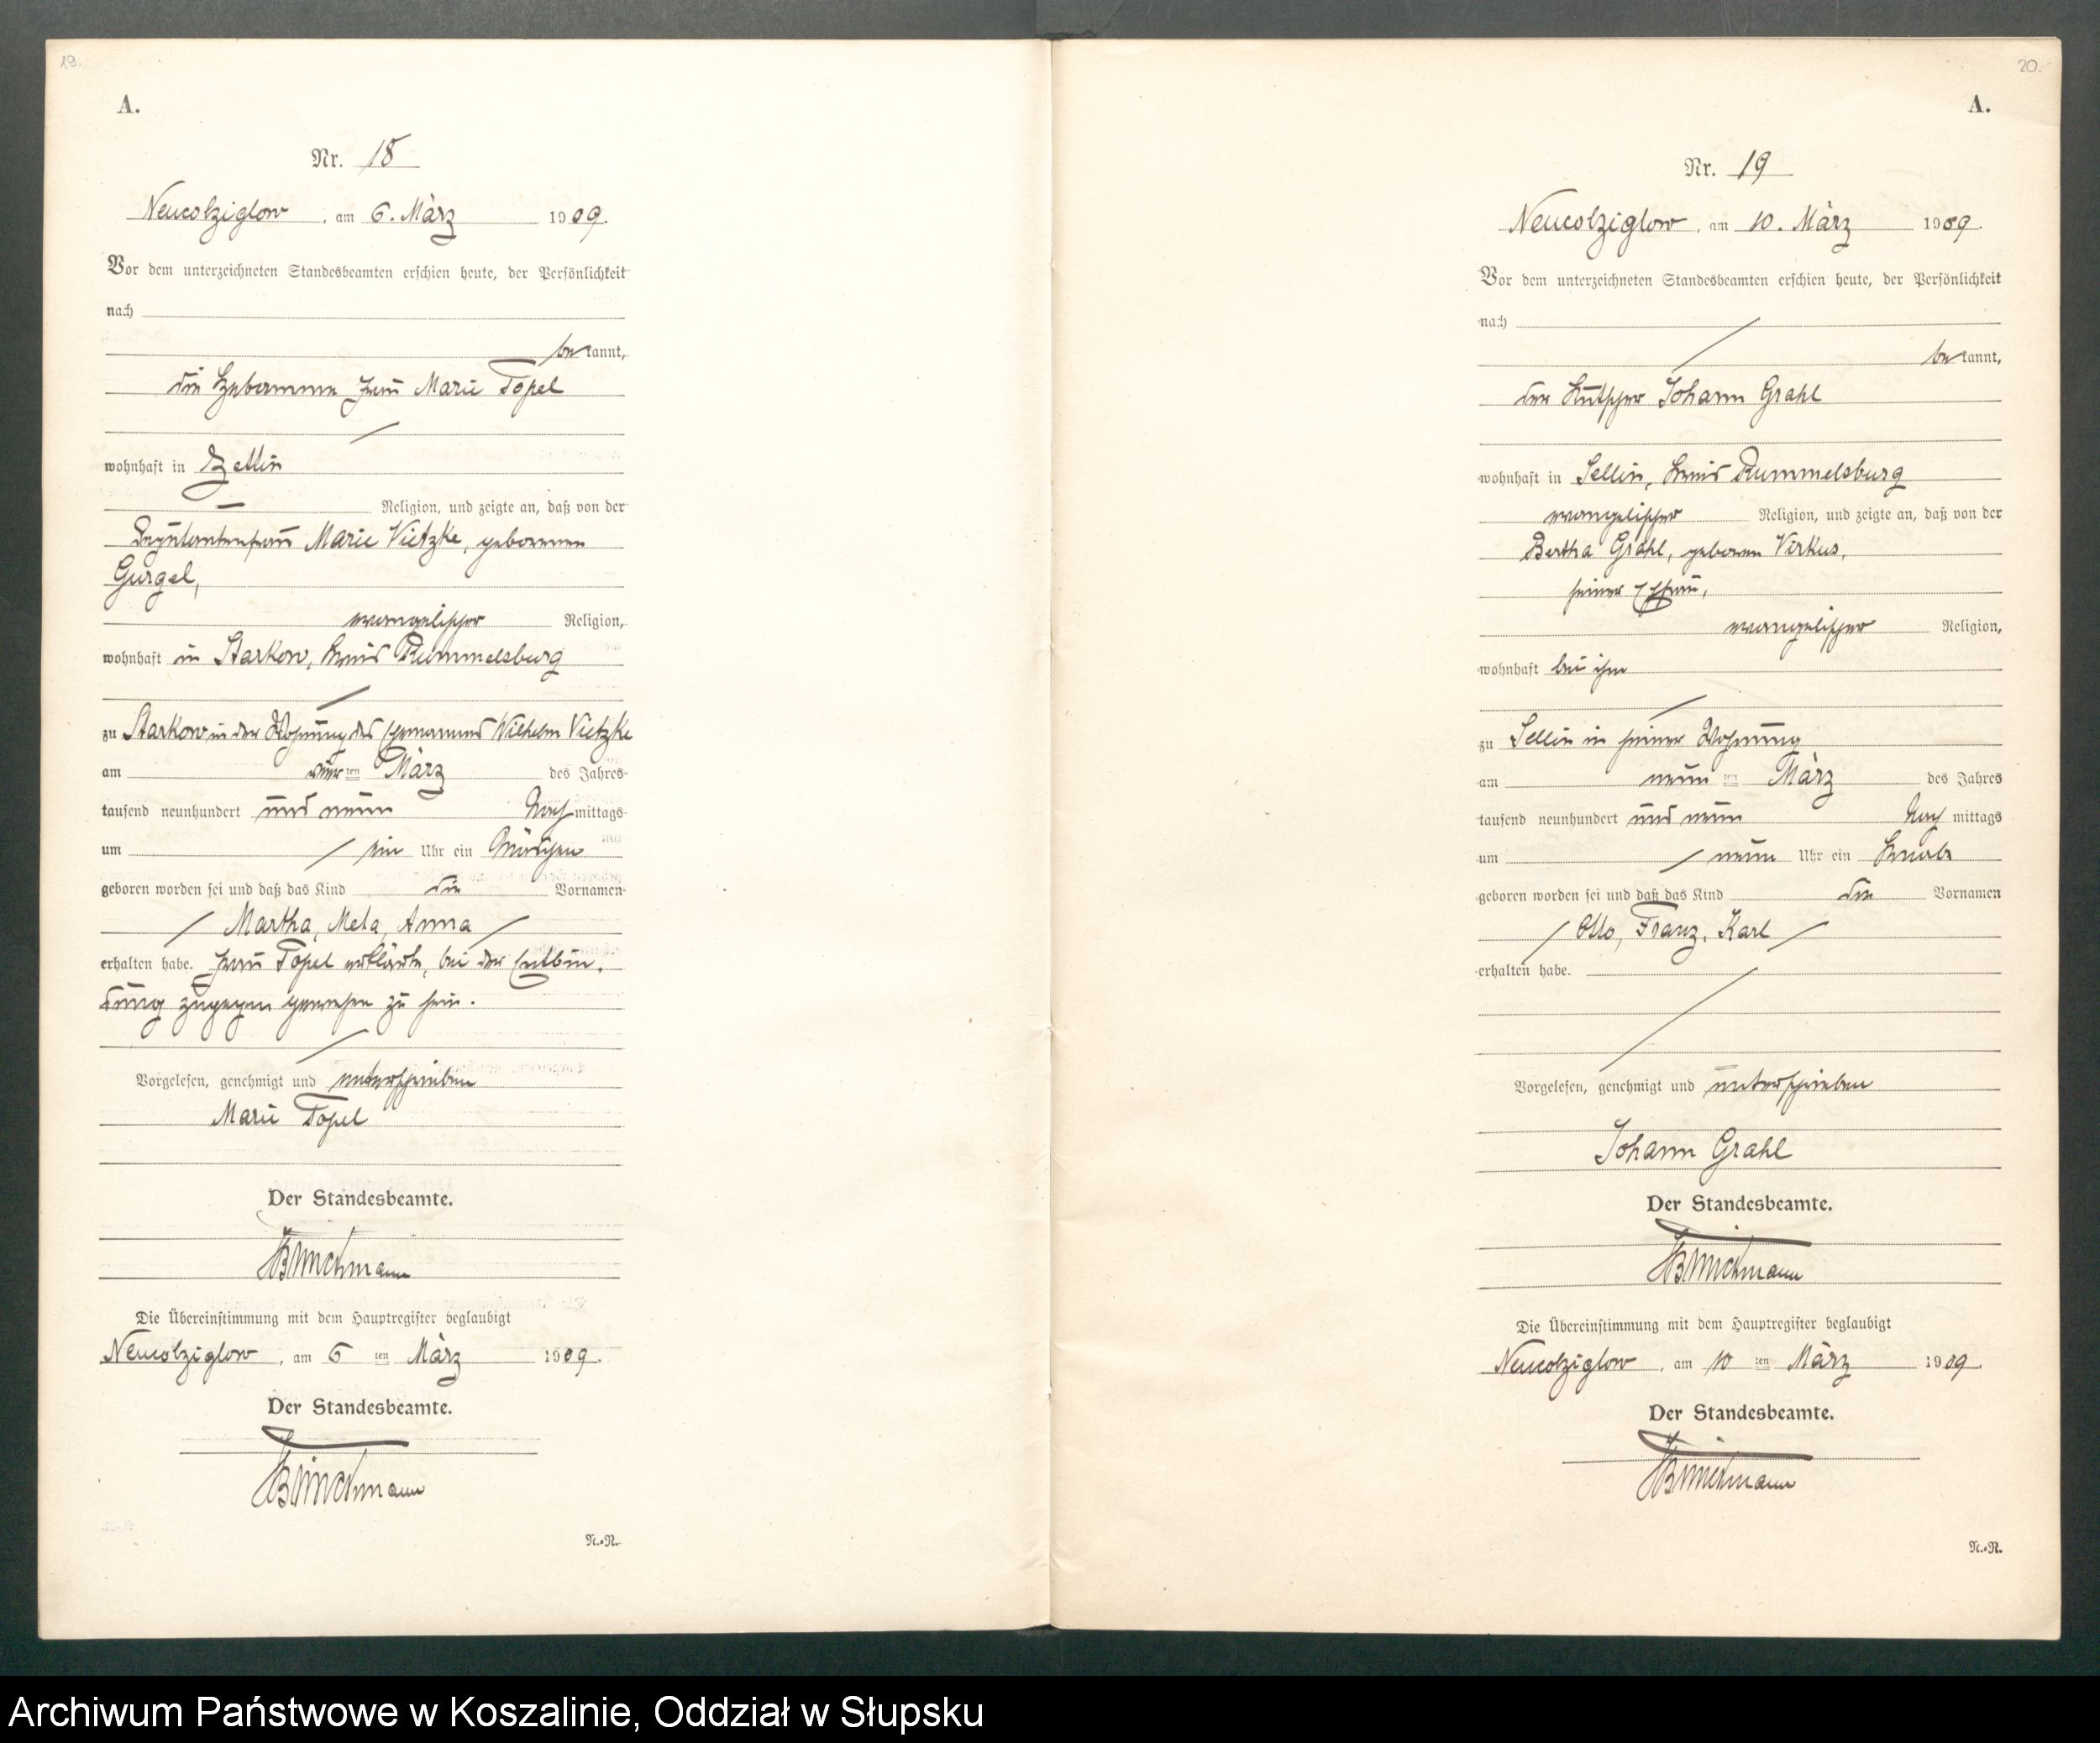 19.
A.
Nr. 18
Neucolziglow, am 6. März 1909.
Vor dem unterzeichneten Standesbeamten erschien heute, der Persönlichkeit
nach
bekannt,
die Hebamme Frau Marie Topel
wohnhaft in Zettin
Religion, und zeigte an, daß von der
Deputantenfrau Marie Vietzke, geborenen
Gurgel,
evangelischer Religion,
wohnhaft in Starkow, Kreis Rummelsburg
zu Starkow in der Wohnung des Ehemannes Wilhelm Vietzke
am vierten März des Jahres
tausend neunhundert und neun Nachmittags
um ein Uhr ein Mädchen
geboren worden sei und daß das Kind die Vornamen
Martha, Meta, Anna
erhalten habe. Frau Topel erklärte, bei der Entbin-
dung zugegen gewesen zu sein.
Vorgelesen, genehmigt und unterschrieben
Marie Topel
Der Standesbeamte.
Die Übereinstimmung mit dem Hauptregister beglaubigt
Neucolziglow, am 6 ten März 1909.
Der Standesbeamte.
N.-R.
20.
A.
Nr. 19
Neucolziglow, am 10. März 1909.
Vor dem unterzeichneten Standesbeamten erschien heute, der Persönlichkeit
nach
bekannt,
der Kutscher Johann Grahl
wohnhaft in Sellin, Kreis Rummelsburg
evangelischer Religion, und zeigte an, daß von der
Bertha Grahl, geboren Virkus,
seiner Ehefrau,
evangelischer Religion,
wohnhaft bei ihm
zu Sellin in seiner Wohnung
am neun ten März des Jahres
tausend neunhundert und neun Nach mittags
um neun Uhr ein Knabe
geboren worden sei und daß das Kind die Vornamen
Otto, Franz, Karl
erhalten habe.
Vorgelesen, genehmigt und unterschrieben
Johann Grahl
Der Standesbeamte.
Die Übereinstimmung mit dem Hauptregister beglaubigt
Neucolziglow, am 10 ten März 1909.
Der Standesbeamte.
N.-R.
Archiwum Państwowe w Koszalinie, Oddział w Słupsku